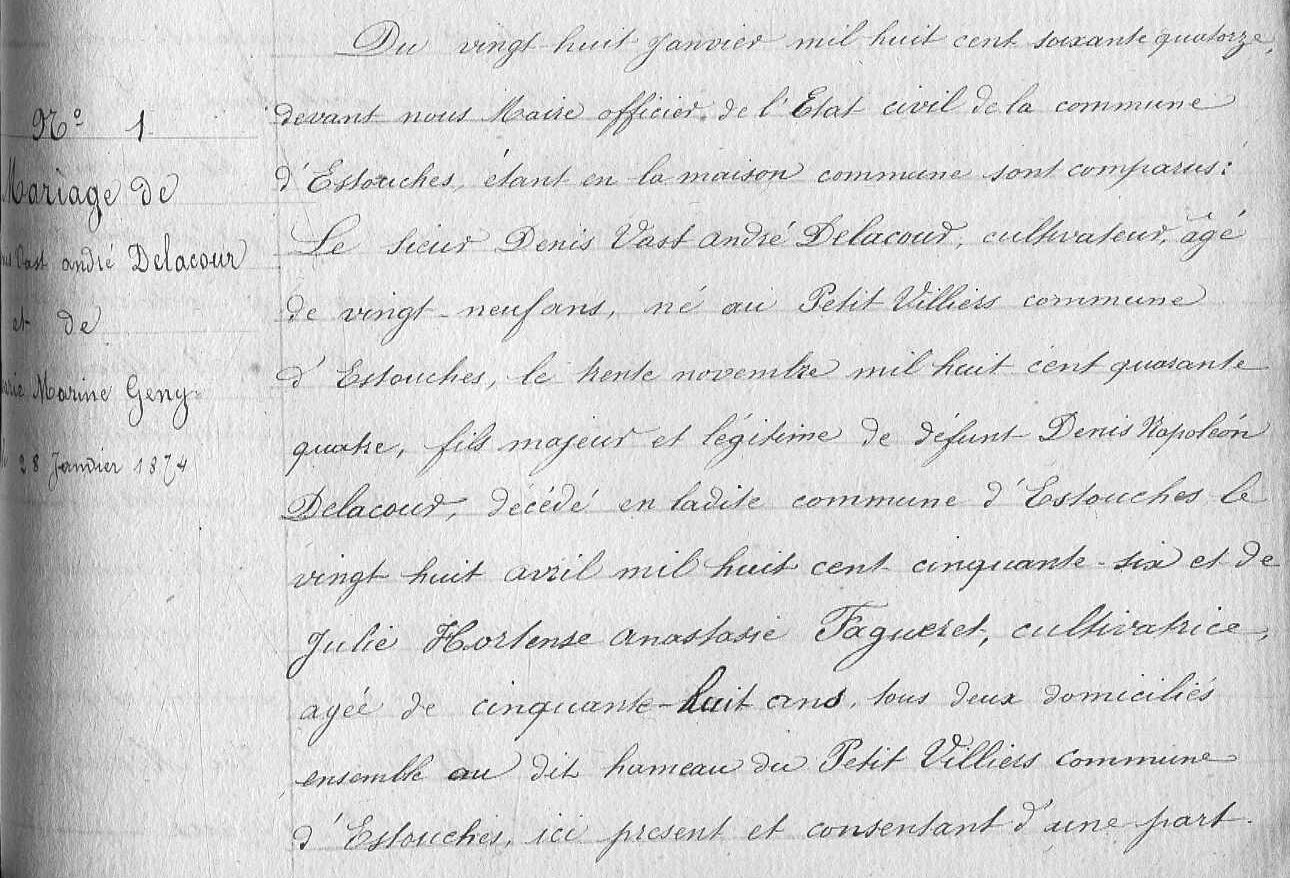 Nº 1
Mariage de
Vast andré Delacour
et de
Marine Geny
28 Janvier 1874
Du vingt huit Janvier mil huit cent soixante quatorze,
devant nous Maire officier de l'Etat civil de la commune
d'Estouches, étant en la maison commune sont comparus :
Le sieur Denis Vast andré Delacour, cultivateur, âgé
de vingt-neuf ans, né au Petit Villiers commune
d'Estouches, le trente novembre mil huit cent quarante
quatre, fils majeur et légitime de défunt Denis Napoléon
Delacour, décédé en ladite commune d'Estouches le
vingt huit avril mil huit cent cinquante-six et de
Julie Hortense anastasie Fagueret, cultivatrice,
agée de cinquante-huit ans, tous deux domiciliés
ensemble au dit hameau du Petit Villiers commune
d'Estouches, ici present et consentant d'une part.